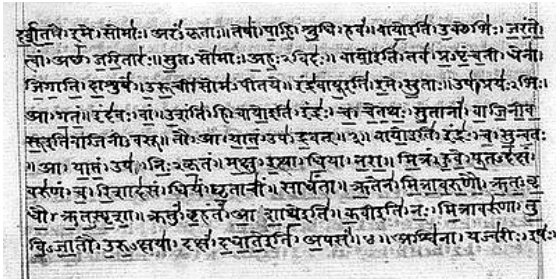 दर्शत॒। इ॒मे। सोमाः॑। अरं॑ कृताः॥ तेषां॑। पा॒हि। श्रु॒धि। हवं॑॥ वायो॒इति॑। उ॒क्थेभिः॑। ज॒रं॒ते॒
त्वां। अच्छ॑। ज॒रि॒तारः॑॥ सु॒त सो॑माः। अ॒हः॒ऽविदः॑॥ वायो॒इति॑। तव॑। प्र॒ऽपृं॒च॒ती। धेना॑
जि॒गा॒ति॒। दा॒शुषे॑॥ उ॒रू॒ची। सोम॑ पीतये॥ इंद्र॑वायू॒इति॑। इ॒मे। सु॒ताः। उप॑। प्रयः॑ऽभिः।
आ। ग॒तं॒॥ इंद॑वः। वां॒। उ॒शंति॑। हि॥ वायो॒इति॑। इंद्रः॑। च॒। चे॒त॒थः॒। सु॒तानां॑। वा॒जि॒नी॒व॒
सू॒इति॑ वाजिनी वसू॥ तौ। आ। या॒तं॒। उप॑। द्र॒वत्॥३॥ वायो॒इति॑। इंद्रः॑। च॒। सु॒न्व॒तः
॥ आ। या॒तं॒। उप॑। निः॒ऽकृ॒तं॥ म॒क्षु। इ॒त्था। धि॒या। न॒रा॒॥ मि॒त्रं। हु॒वे॒। पू॒तऽद॑क्षं
वरु॑णं। च॒। रि॒शाद॑सं॥ धियं॑। घृ॒ताचीं॑। साधं॑ता॥ ऋ॒तेन॑। मि॒त्रा॒व॒रु॒णौ॒। ऋ॒त॒ऽवृ॒
धौ॒। ऋ॒त॒ऽस्पृ॒शा॒॥ क्रतुं॑। बृ॒हंतं॑। आ॒शा॒थे॒इति॑॥ क॒वीइति॑। नः॒। मि॒त्रावरु॑णा। तु॒
वि॒ऽजा॒तौ। उ॒रु॒ऽक्षया॑॥ दक्षं॑। द॒धा॒ते॒इति॑। अ॒पसं॑॥४॥ अश्वि॑ना। यज्व॑रीः। इषः॑।